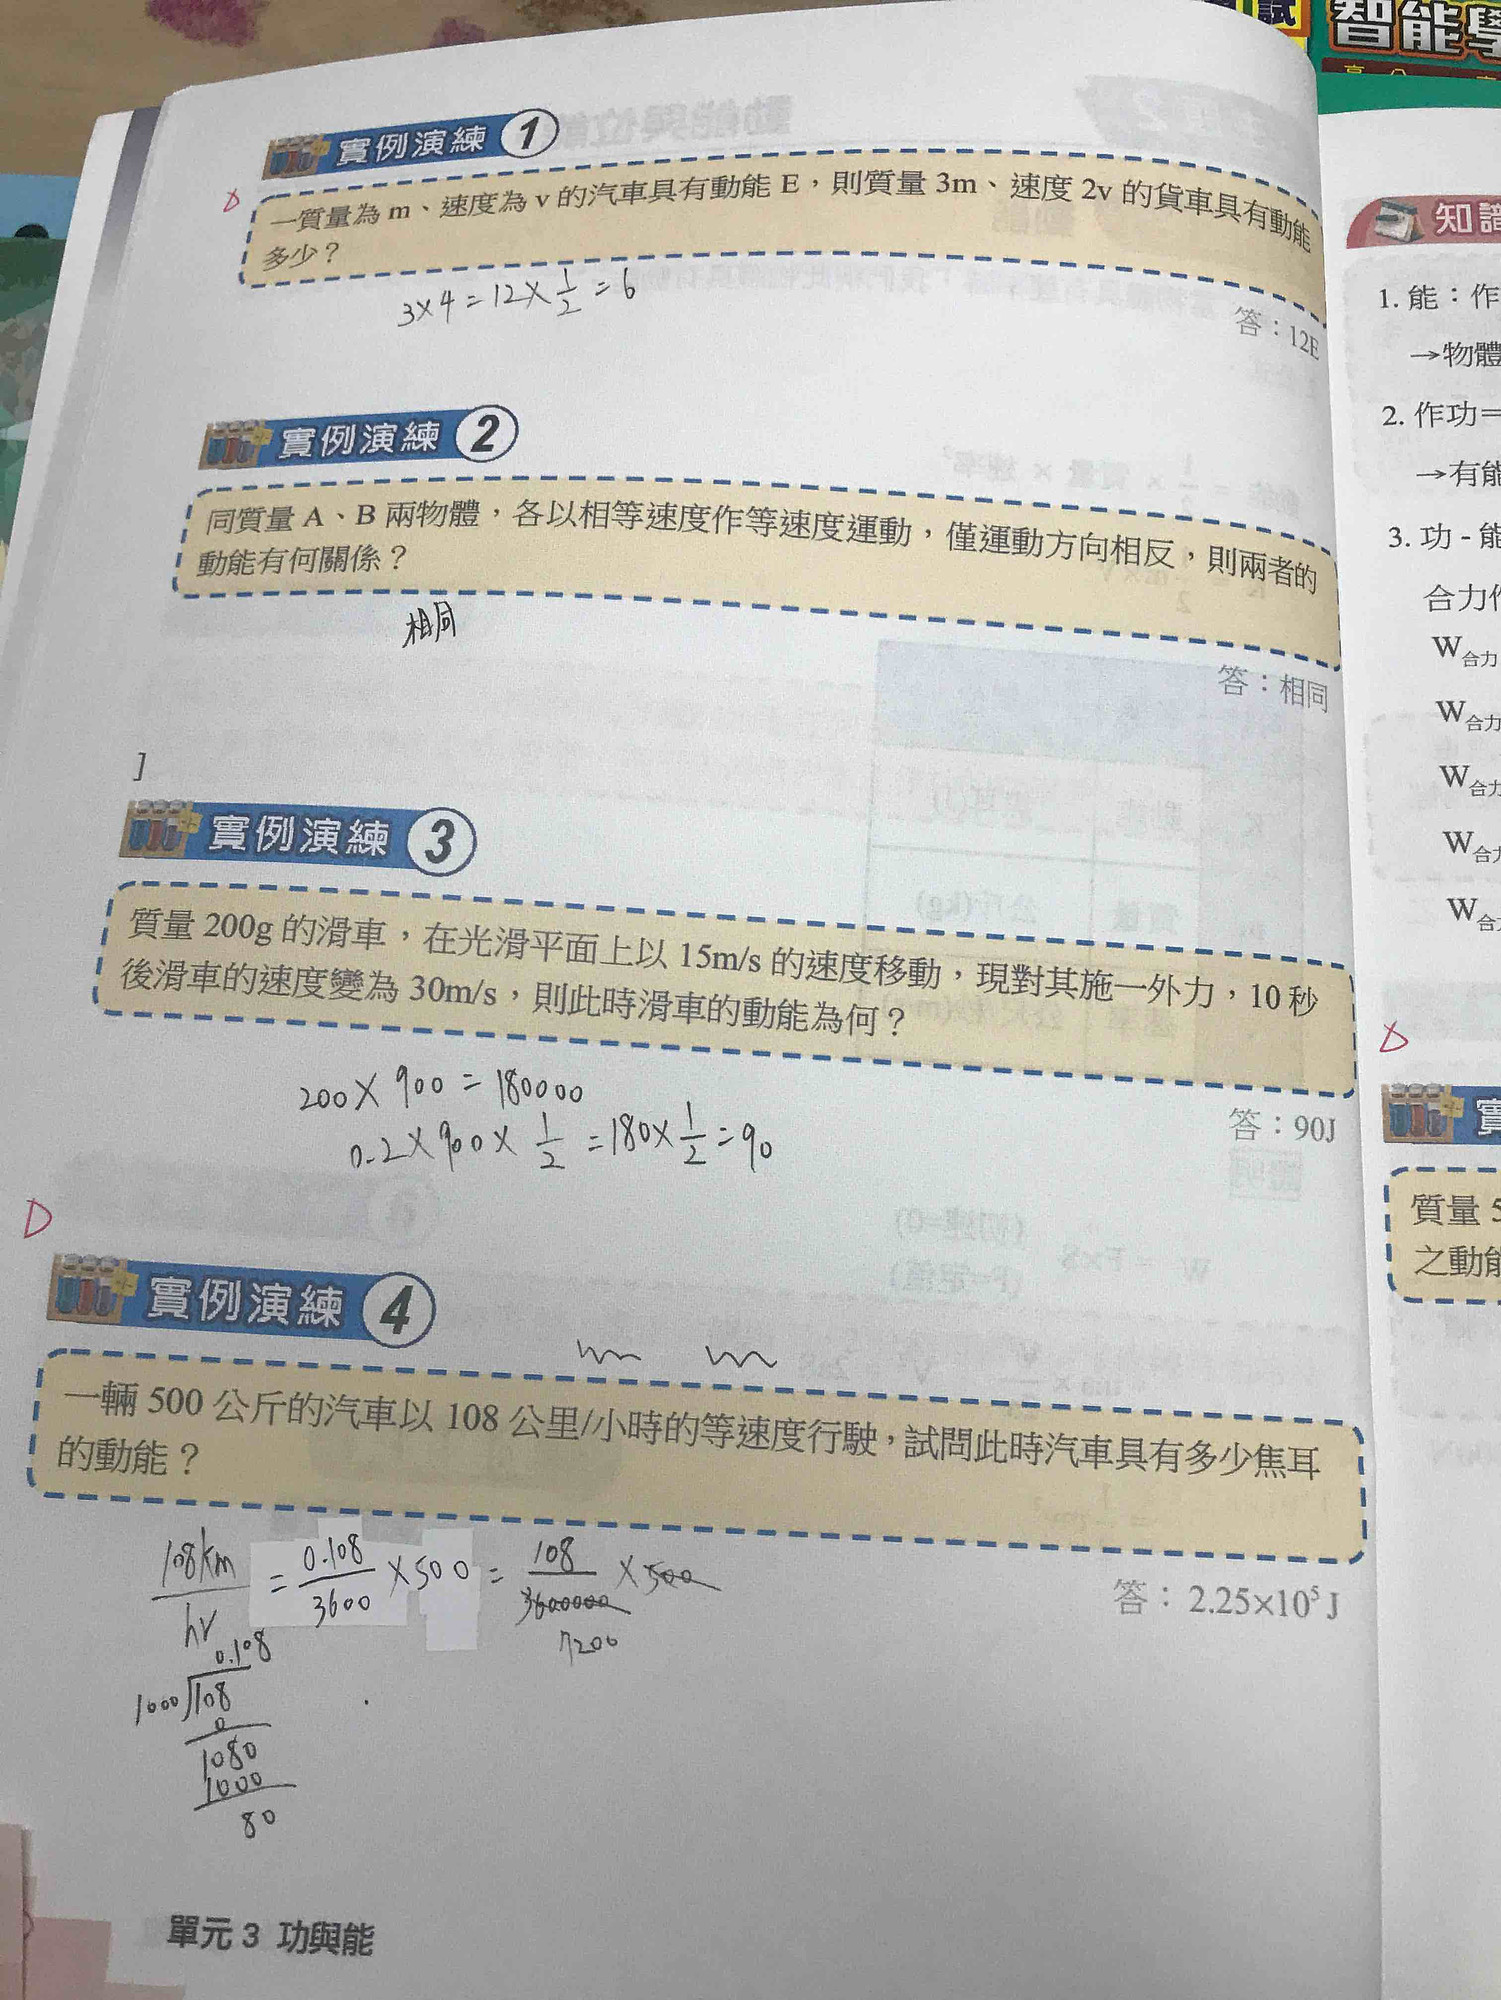 智能學
實例演練 1
一質量為 m、速度為 v 的汽車具有動能 E，則質量 3m、速度 2v 的貨車具有動能
多少？
3×4=12×1/2=6
答：12E
實例演練 2
同質量 A、B 兩物體，各以相等速度作等速度運動，僅運動方向相反，則兩者的
動能有何關係？
相同
答：相同
]
實例演練 3
質量 200g 的滑車，在光滑平面上以 15m/s 的速度移動，現對其施一外力，10 秒
後滑車的速度變為 30m/s，則此時滑車的動能為何？
200×900=180000
0.2×900×1/2=180×1/2=90
答：90J
D
實例演練 4
一輛 500 公斤的汽車以 108 公里/小時的等速度行駛，試問此時汽車具有多少焦耳
的動能？
108km/hr=0.108/3600×500=108/3600000×500
7200
答：2.25×10⁵ J
0.108
1000 108
0
1080
1000
80
單元 3 功與能
知識
1. 能：作
→物體
2. 作功=
→有能
3. 功 - 能
合力作
W合力
W合力
W合力
W合力
W合
實
質量 5
之動能